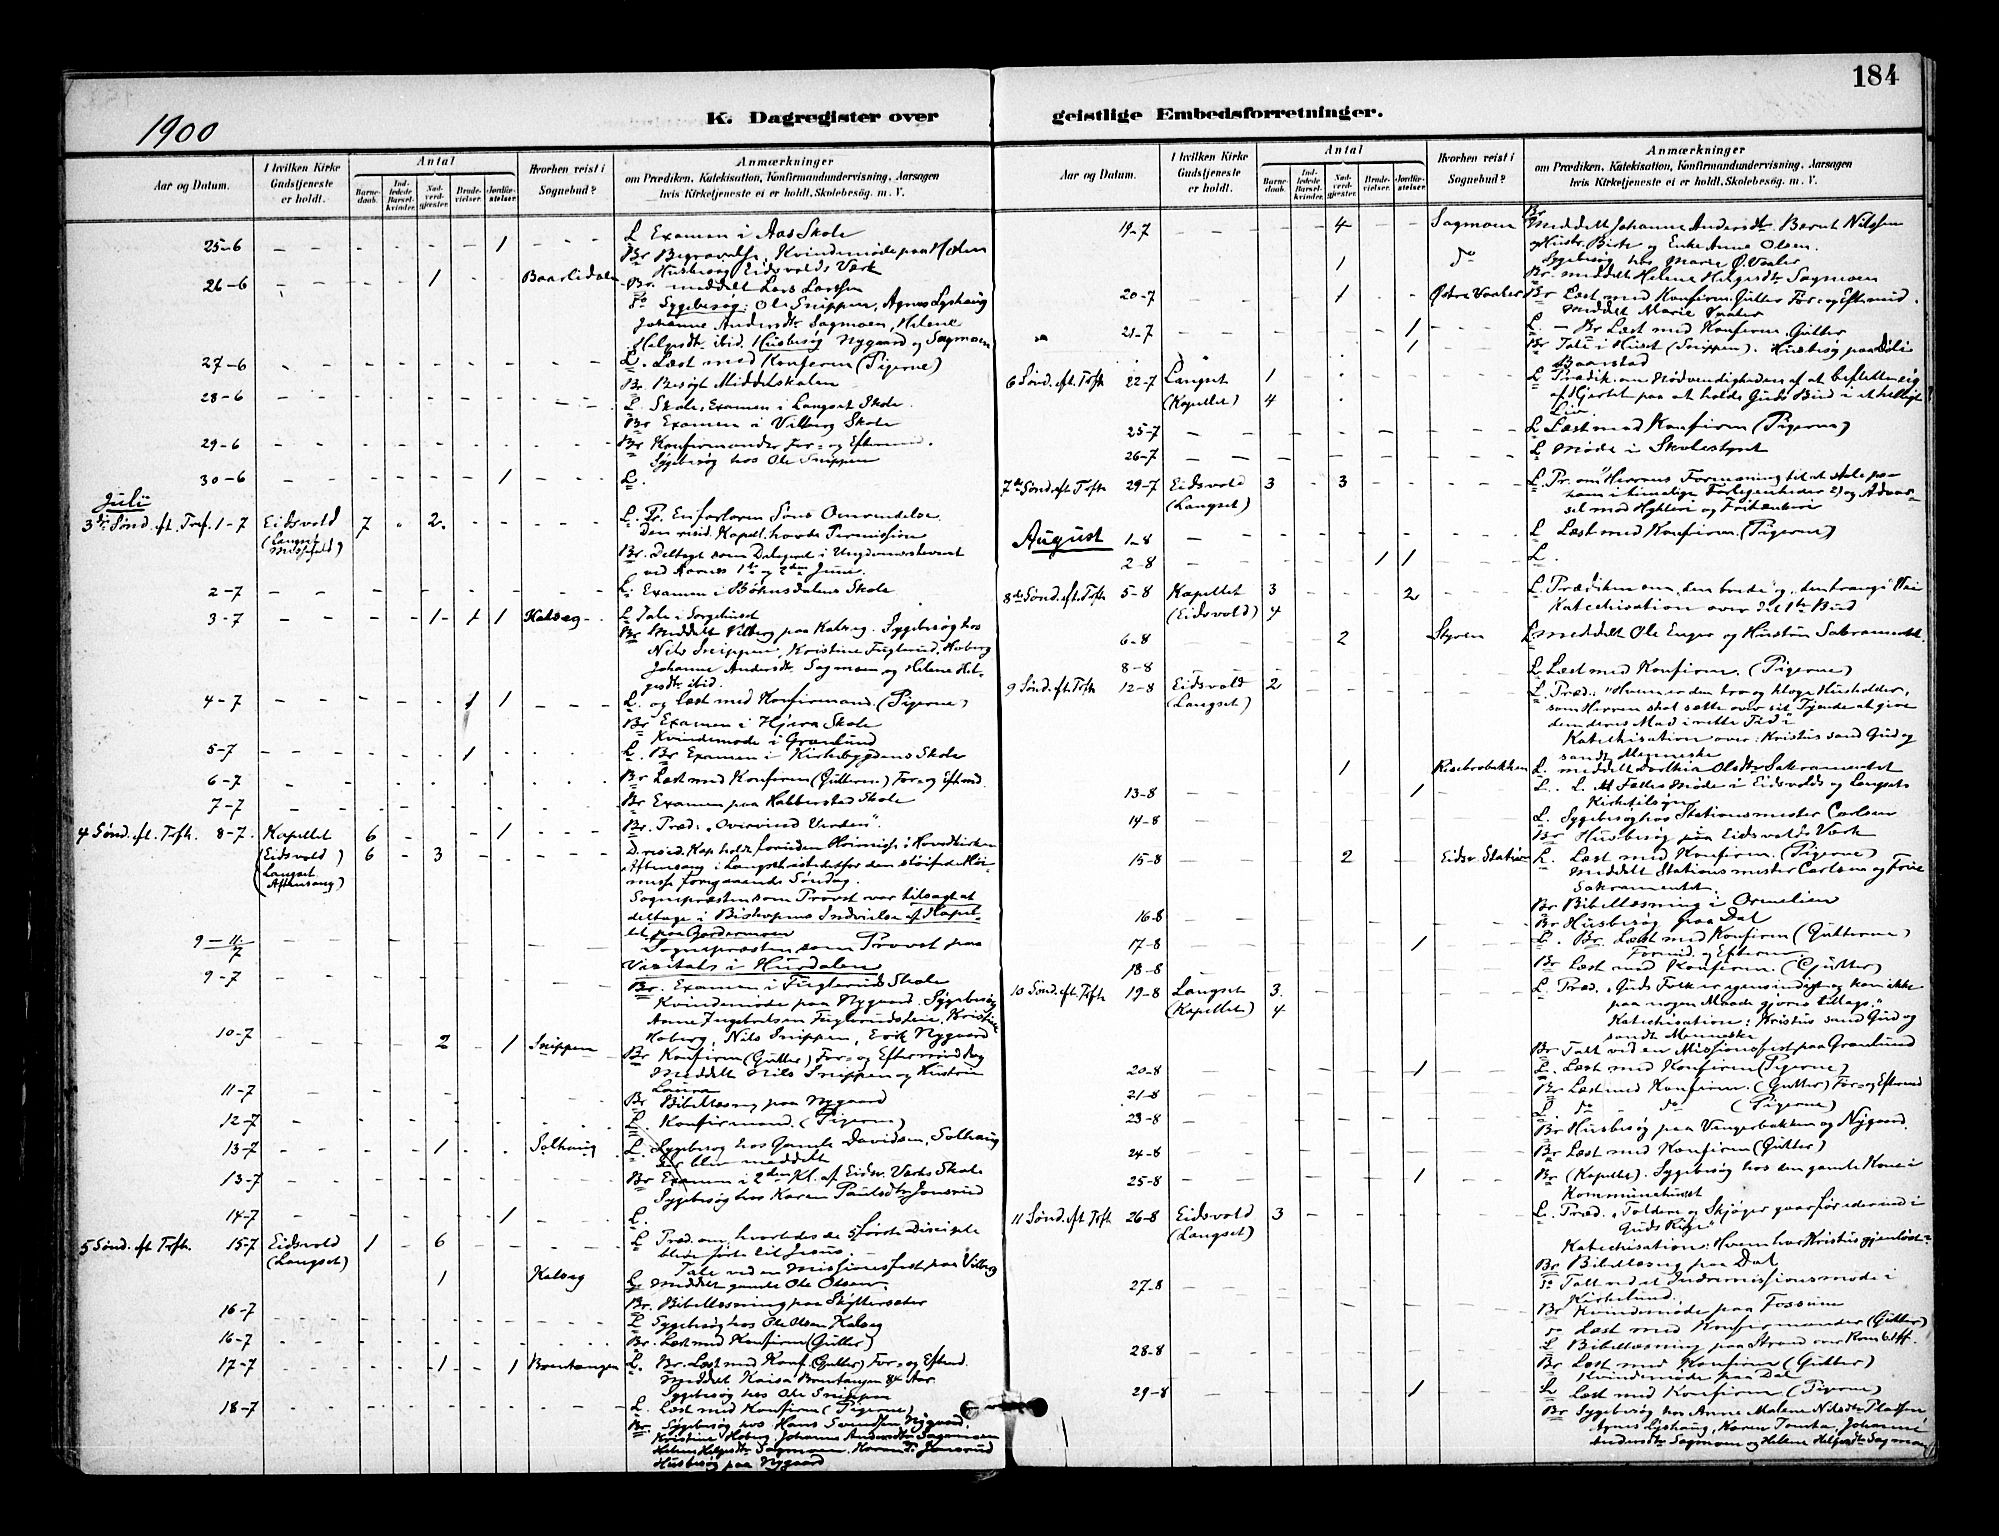 184
1900
K. Dagregister over geistlige Embedsforretninger.
Aar og Datum.
I hvilken Kirke Gudstjeneste er holdt.
Antal
Barnedaab.
Indledede Barselkvinder.
Nadverdgjæster.
Brudevielser.
Jordfæstelser.
Hvorhen reist i Sognebud?
Anmærkninger
om Prædiken, Katekisation, Konfirmandundervisning, Aarsagen hvis Kirketjeneste ei er holdt, Skolebesøg. m. V.
25-6 – – – – – 1 – – – L Examen i Aas Skole
Br Begravelse, Kvindemøde paa Molen
Husbesøg Eidsvolds Værk
26-6 1 Baarlidalen Br. meddelt Lars Larsen
do Sygebesøg: Ole Snippen, Agnes Lyshaug
Johanne Andersdtr Sagmoen, Helene
Helgesdtr ibid. Husbesøg Nygaard og Sagmoen
27-6 L. Læst med Konfirm (Pigerne)
Br. Besøgt Middelskolen
28-6 L. Skole, Examen i Langset Skole
Br Examen i Vilberg Skole
29-6 Br Konfirmander For- og Eftermid.
Sygebesøg hos Ole Snippen
30-6 1 L.
Juli
3die Sønd. eft. Tref. 1-7 Eidsvold 7 " 2 L. Pr. En fortoren Søns Omvendelse.
(Langset Messefald) Den resid. Kapell. havde Permission
Br. deltaget som Delegeret i Ungdomsstevnet
ved Aarnes 1ste og 2den Juli.
2-7 L. Examen i Bøhnsdalens Skole
3-7 1 1 1 Kalseg L Tale i Sorgehuset
Br Meddelt Vilberg paa Kalseg. Sygebesøg hos
Nils Snippen, Kristine Fuglerud, Hoberg
Johanne Andersdtr Sagmoen og Helene Helgesdtr ibid.
4-7 1 1 L. og læst med Konfirmand. (Pigerne)
Br Examen i Hjera Skole
Kvindemøde i Grønlund
5-7 1 L. Br Examen i Kirkebygdens Skole
6-7 Br Læst med Konfirm (Gutterne) For- og Eftmd.
7-7 Br Examen paa Habberstad Skole
4 Sønd. eft. Trefh. 8-7 Kapellet 6 1 Br. Præd: „Overvind Verden".
(Eidsvold) 6 – 3 D. resid. Kap. holdt foruden Høimesse i Hovedkirken
(Langset Aftensang) Aftensang i Langset istedetfor den sløifede Høimesse foregaaende Søndag.
Sognepræsten som Provst var tilsagt at
deltage i Biskopens Indvielse af Kapellet paa Gardermoen
9-11/7 Sognepræsten som Provst paa
Visitats i Hurdalen
9-7 Br. Examen i Fuglerud Skole
Kvindemøde paa Nygaard. Sygebesøg
Anne Ingebretsen Fuglerudsleie, Kristine
Hoberg, Nils Snippen, Erik Nygaard
10-7 2 1 Snippen Br Konfirm (Gutter) For- og Eftermiddag
Meddelt Nils Snippen og Hustru
Laura
11-7 Br Bibellæsning paa Nygaard
12-7 L. Konfirmand. (Pigerne)
13-7 1 Solhaug L. Sygebesøg hos Gamle Davidsen, Solhaug
der blev meddelt
13-7 Br Examen i 2den Kl. af Eidsv. Værks Skole
Sygebesøg hos Karen Paulsdtr Jonsrud
14-7 1 L.
5 Sønd. eft Trefh. 15-7 Eidsvold 1 – 6 L Præd. om, hvorledes de 5 første Disciple
(Langset) blev ført til Jesus.
Tale ved en Missionsfest paa Vilberg
1 Kalseg L Meddelt gamle Ole Olsen
16-7 Br. Bibellæsning paa Skyttersæter
L Sygebesøg hos Ole Olsen Kalseg
16-7 Br. Læst med Konfirm (Gutter)
17-7 1 1 Brentangen L. Br. Læst med Konf. (Gutter) For- og Eftmd.
Meddelt Kaisa Brentangen 84 Aar.
Sygebesøg hos Ole Snippen
18-7 L Læst med Konfirm (Pigerne)
Br Sygebesøg hos Hans Svendsen Nygaard,
Kristine Hoberg, Johanne Andersdtr Sagmoen
Helene Helgesdtr Sagmoen, Jonsrud
Husbesøg paa Nygaard
19-7 4 Sagmoen Br Meddelt Johanne Andersdtr. Bernt Nilssen
og Hustr. Birte og Enke Anne Olsen.
Sygebesøg hos Marie Ø. Vaaler
1 do Br. meddelt Helene Helgesdtr Sagmoen
20-7 1 Østre Vaaler Br Læst med Konfirm. Gutter For- og Eftmid.
Meddelt Marie Vaaler
21-7 1 L. – Br Læst med Konfirm. Gutter
1 Br Tale i Huset (Snippen). Husbesøg paa
Baarstad
6 Sønd. eft. Trefh 22-7 Langset 1 L Prædik. om Nødvendigheden af at beflitte sig
(Kapellet) 4 af Hjertet paa at holde Guds Bud i et helligt
Liv.
25-7 L Læst med Konfirm (Pigerne)
26-7 L Møde i Skolestyret
7de Sønd eft Trefh 29-7 Eidsvold 3 – 3 L Pr. om Herrens Formaning
(Langset) som i timelige Forlegenheder 2) og Advarsel mod Hyklere og Fritænkere
August 1-8 L Læst med Konfirm. (Pigerne)
2-8 1 1 L.
8de Sønd. eft. Trefh 5-8 Kapellet 3 2 L. Prædiken om „den brede" og „den trange" Vei
(Eidsvold) 4 Katechisation over det 1ste Bud
6-8 2 Styren L meddelt Ole Enger og Hustru Sakramentet
8-8 L. Læst med Konfirm. (Pigerne)
9 Sønd. eft Trefh 12-8 Eidsvold 2 L. Præd.: "Hvem er den tro og kloge Husholder,
(Langset) som Herren skal sætte over sit Tyende at give
dem deres Mad i rette Tid"
Katechisation over: Kristus sand Gud og
sandt Menneske
1 Risebrobakken L. meddelt Dorthea Olsdtr Sakramentet
13-8 1 L. L. At Fælles Møde i Eidsvolds og Langsets
Kirketilsyn
14-8 L. Sygebesøg hos Stationsmester Carlsen
Br Husbesøg paa Eidsvolds Værk
15-8 2 Eidsv. Station L. Læst med Konfirm. (Pigerne)
Meddelt Stationsmester Carlsen og Frue
Sakramentet.
Br Bibellæsning i Ormelien
16-8 Br Husbesøg paa Dal
17-8 1 L. Br. Læst med Konfirm (Gutterne)
Formid. og Efterm
18-8 Br Læst med Konfirm. (Gutter)
10 Sønd. eft Trefh 19-8 Langset 3. L. Præd. „Guds Folk er egensindigt og kan ikke
(Kapellet) 4 paa nogen Maade gjøres tillags."
Katechisation: Kristus sand Gud og
sandt Menneske
Br Talt ved en Missionsfest paa Grønlund
20-8 1 L. Læst med Konfirm (Pigerne)
21-8 Br Læst med Konfirm. (Gutter) For- og Eftermd
L do do (Pigerne)
23-8 Br Husbesøg paa Vengerbakken og Nygaard.
24-8 Br Læst med Konfirm (Gutter)
25-8 1 Br (Kapellet). Sygebesøg hos den gamle Kone i
Kommunehuset
11 Sønd. eft Trefh 26-8 Eidsvold 3 L. Præd. „Toldere og Skjøger gaar før eder ind i
(Langset) Guds Rige"
Katechisation: Hvem har Kristus gjenløst?
Br Bibellæsning paa Dal
27-8 do Talt ved et Indremissionsmøde i
Kirkelund.
Br Kvindemøde paa Fossum
do Læst med Konfirmander (Gutter)
28-8 L Bibellæsning paa Strand
Br Læst med Konfirm (Gutter)
Kvindemøde paa Dal
29-8 1 L Læst med Konfirm (Pigerne)
Br Sygebesøg hos Anne Malene Nilsdtr Pladsen
Agnes Lyshaug, Karen Tomta, Johanne
Andersdtr Sagmoen og Helene Helgesdtr Sagmoen